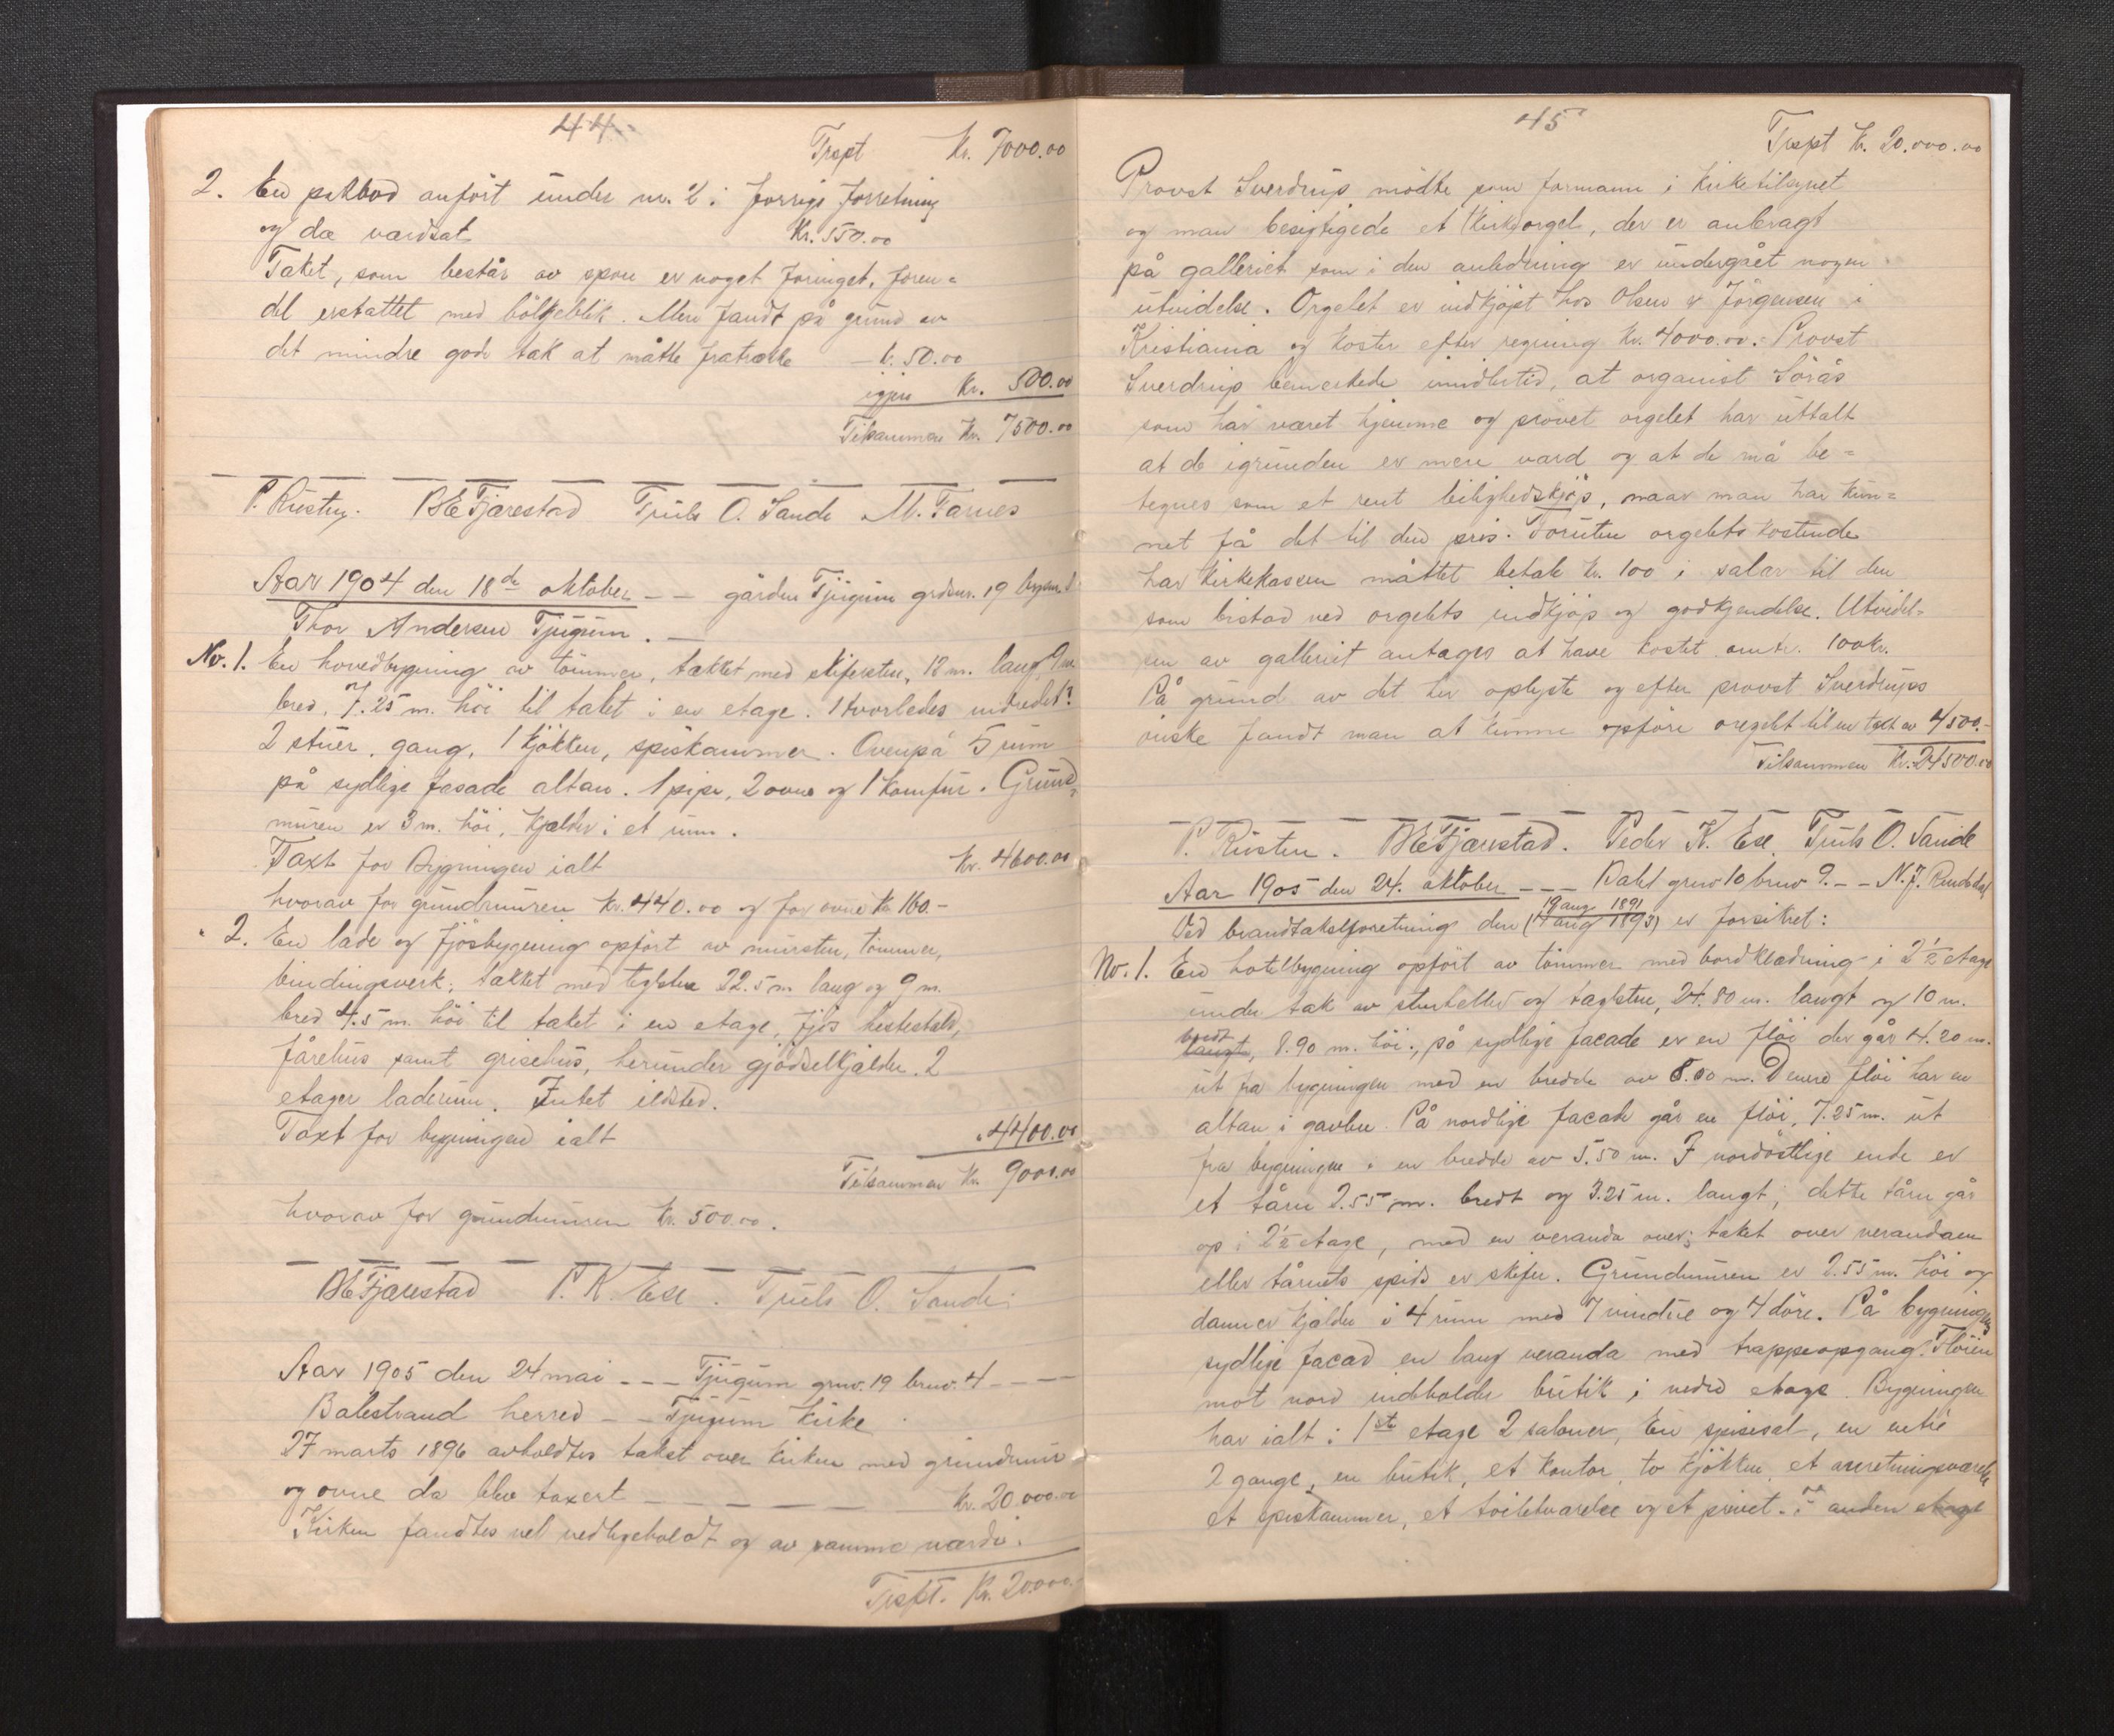 44
Trspt Kr. 7000.00
2. En pakbod anført under nr. 2 i forrige forretning
og da værdsat Kr. 550.00
Taket, som består av spon er noget foringet, foren=
del erstattet med bölgeblik. Men fandt på grund av
det mindre gode tak at måtte fratrække k. 50.00
igjen Kr. 500.00
Tilsammen Kr. 7500.00
P. Risten. B E Fjærestad Truls O. Sande M. Farnes
Aar 1904 den 18de oktober -- gården Tjugum grdsnr. 19
Thor Andersen Tjugum. -
No. 1. En hovedbygning av tömmer, tækket med skifersten, 12 m. lang 9 m
bred, 7.25 m. höi til taket i en etage. Hvorledes indredet?
2 stuer, gang, 1 kjökken, spiskammer. Ovenpå 5 rum
på sydlige fasade altan. 1 pipe, 2 ovne og 1 komfur. Grund=
muren er 3 m. höi, kjælder i et rum.
Taxt for Bygningen ialt Kr. 4600.00
hvorav for grundmuren Kr. 440.00 og for ovne Kr 160.-
" 2. En lade og fjösbygning opført av mursten, tömmer,
bindingsverk, tækket med teglsten 22.5 m lang og 9 m.
bred 4.5 m. höi til taket i en etage, fjös hestestald,
fårehus samt grisehus, herunder gjödselkjælder. 2
etager laderum. Intet ildsted.
Taxt for bygningen ialt " 4400.00
Tilsammen Kr. 9000.00
hvorav for grundmuren Kr. 500.00.
B E Fjærestad P. K. Ese. Truls O. Sande.
Aar 1905 den 24 mai --- Tjugum grnr. 19 brnr. 4 ---
Balestrand herred -- Tjugum kirke
27 marts 1896 avholdtes takst over kirken med grundmur
og ovne da blev taxert ----- Kr. 20.000.00
Kirken fandtes vel vedligeholdt og av samme værdi.
Trspt. Kr. 20.000.-
45
Trspt Kr. 20.000.00
Provst Sverdrup mödte som formann i kirketilsynet
og man besigtigede et kirkeorgel, der er anbragt
på galleriet som i den anledning er undergået nogen
utvidelse. Orgelet er indkjöpt hos Olsen & Jörgensen i
Kristiania og koster efter regning Kr. 4000.00. Provst
Sverdrup bemerkede imidlertid, at organist Sörås
som har været hjemme og prövet orgelet har uttalt
at de igrunden er mere værd og at de må be=
tegnes som et rent leilighedskjöp, naar man har kun=
net få det til den pris. Foruten orgelets kostende
har kirkekassen måttet betale kr. 100 i salær til den
som bistod ved orgelets indkjöp og godkjendelse. Utvidel=
sen av galleriet antages at have kostet omtr. 100 kr.
På grund av det her oplyste og efter provst Sverdrups
önske fandt man at kunne opföre oregelet til en takst av 4500.-
Tilsammen Kr. 24500.00
P. Risten. B E Fjærestad. Peder K. Ese. Truls O. Sande
Aar 1905 den 24. oktober --- Balet grnr 10 brnr 9. -- N. J.
19 aug 1891
Ved brandtakstforretning den (1 aug 1893) er forsikret:
No. 1. En hotelbygning opfört av tömmer med bordklædning i 2 1/2 etage
under tak av stenheller og taksten, 24.80 m. langt og 10 m.
bredt
langt, 8.90 m. höi, på sydlige facade er en flöi der går 4.20 m.
ut fra bygningen med en bredde av 8.00 m. Denne flöi har en
altan i gavlen. På nordlige facade går en flöi, 7.25 m. ut
fra bygningen i en bredde av 5.50 m. I nordöstlige ende er
et tårn 2.55 m. bredt og 3.25 m. langt, dette tårn går
op i 2 1/2 etage, med en veranda over; taket over verandaen
eller tårnets spids er skifer. Grundmuren er 2.55 m. höi og
danner kjælder i 4 rum med 7 vindue og 4 döre. På bygningens
sydlige facad en lang veranda med trappeopgang. Flöien
mot nord indeholder butik i nedre etage. Bygningen
har ialt i 1ste etage 2 saloner, En spisesal, en entré
2 gange, en butik, et kontor, to kjökken, et anretningsværelse
et spiskammer, et toiletværelse og et privet. I anden etage